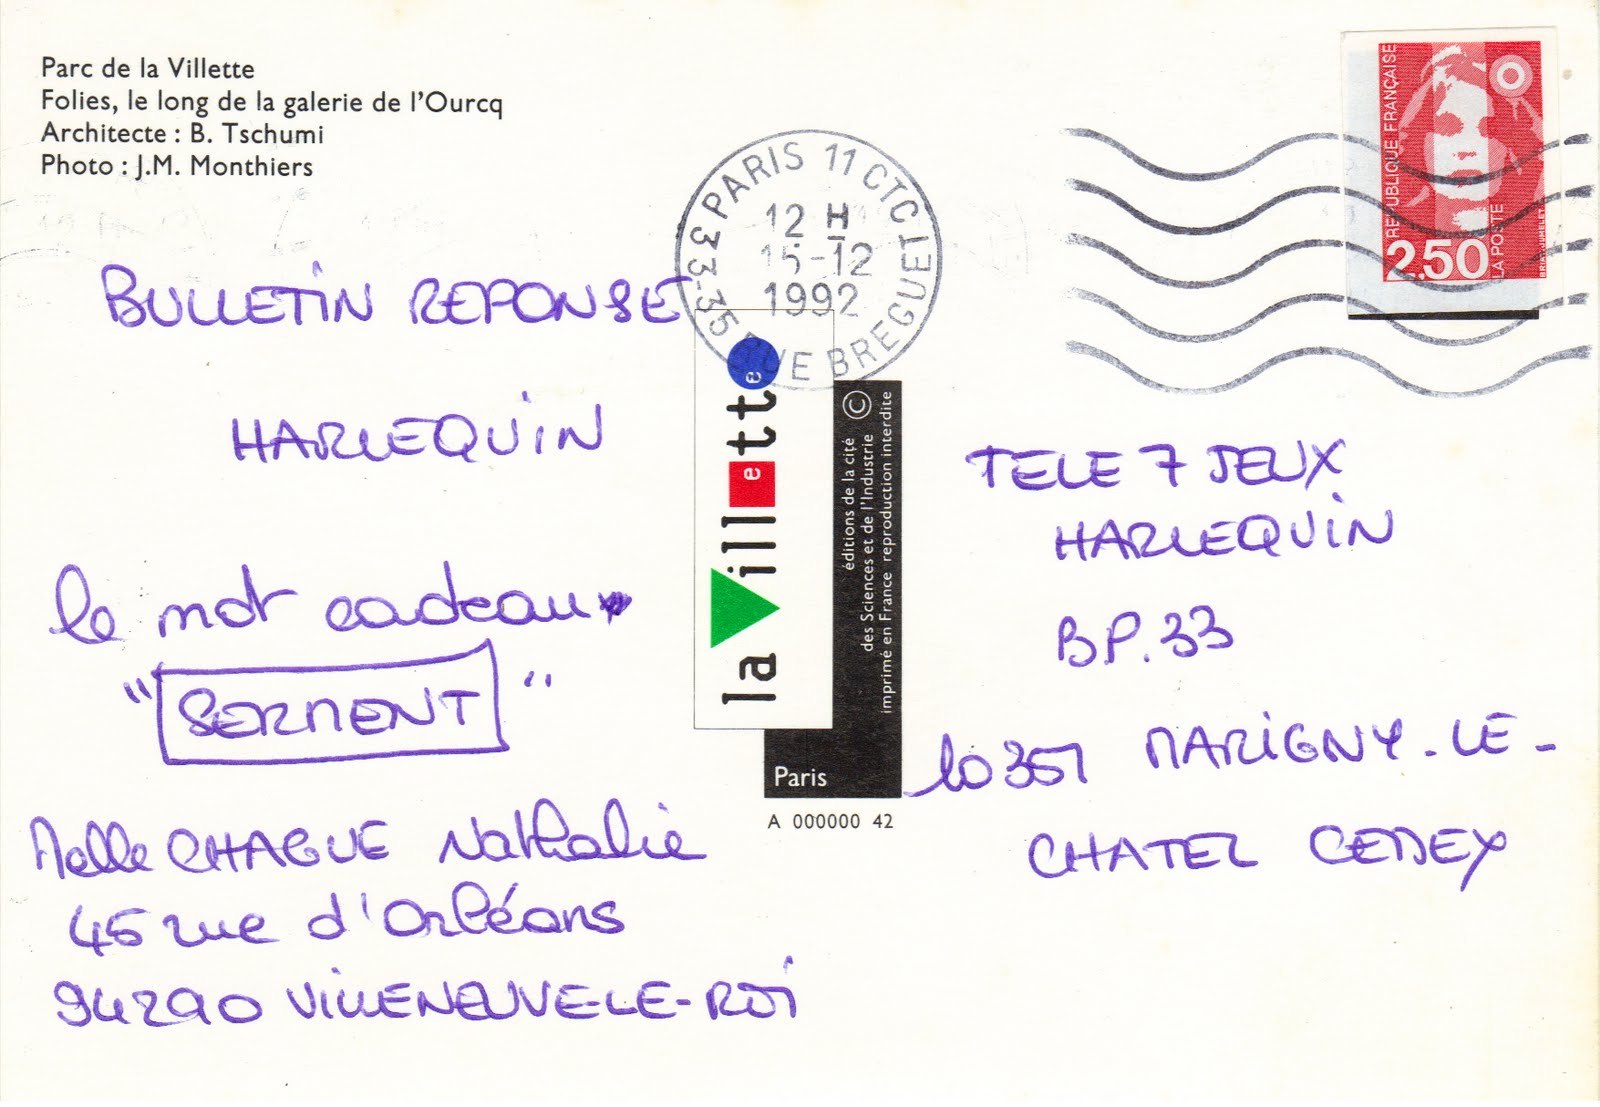 Parc de la Villette
Folies, le long de la galerie de l'Ourcq
Architecte : B. Tschumi
Photo : J.M. Monthiers
BULLETIN REPONSE
HARLEQUIN
le mot cadeau
" SERMENT "
Melle CHAGUE Nathalie
45 rue d'Orléans
94290 VILLENEUVE-LE-ROI
PARIS 11 RUE BREGUET
12 H
15-12
1992
la Villette
© éditions de la cité
des Sciences et de l'Industrie
imprimé en France reproduction interdite
Paris
A 000000 42
REPUBLIQUE FRANÇAISE
2,50
LA POSTE
TELE 7 JEUX
HARLEQUIN
BP.33
10357 MARIGNY-LE-
CHATEL CEDEX